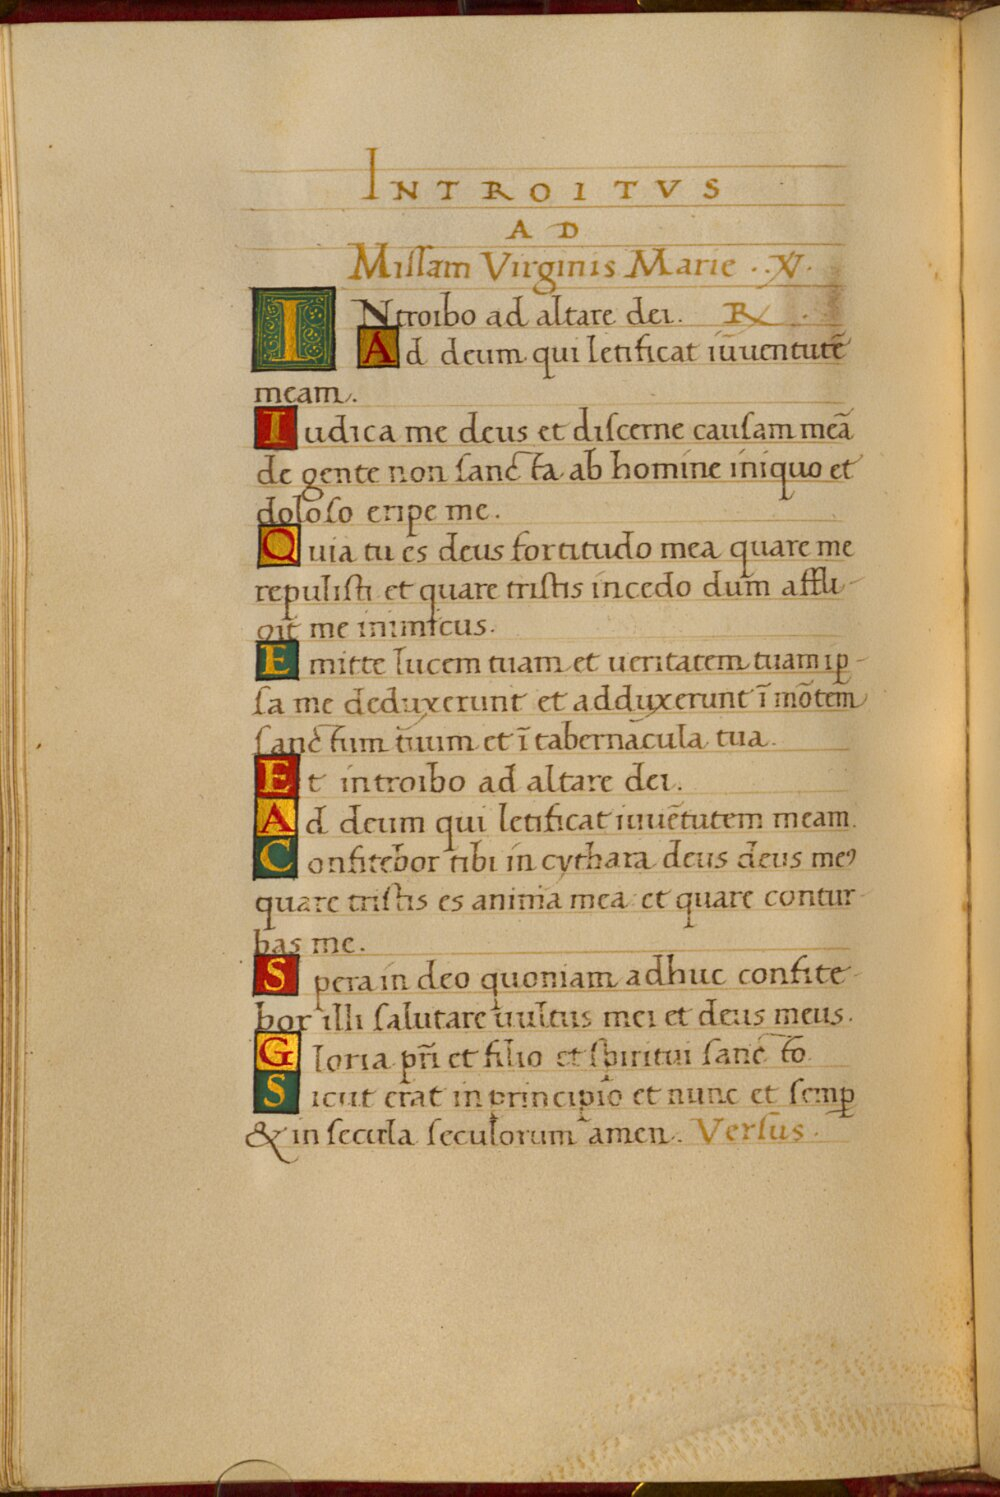 INTROITVS
AD
Missam Virginis Marie . . V̶ .
INtroibo ad altare dei. ℟ .
Ad deum qui letificat iuuentutē
meam.
Iudica me deus et discerne causam meā
de gente non sancta ab homine iniquo et
doloso eripe me.
Quia tu es deus fortitudo mea quare me
repulisti et quare tristis incedo dum affli-
git me inimicus.
Emitte lucem tuam et ueritatem tuam ip-
sa me deduxerunt et adduxerunt ī mōtem
sanctum tuum et ī tabernacula tua.
Et introibo ad altare dei.
Ad deum qui letificat iuuētutem meam.
Confitebor tibi in cythara deus deus meꝰ
quare tristis es anima mea et quare contur-
bas me.
Spera in deo quoniam adhuc confite-
bor illi salutare uultus mei et deus meus.
Gloria pr̄i et filio et spiritui sancto.
Sicut erat in principio et nunc et semꝑ
& in secula seculorum amen. Versus.